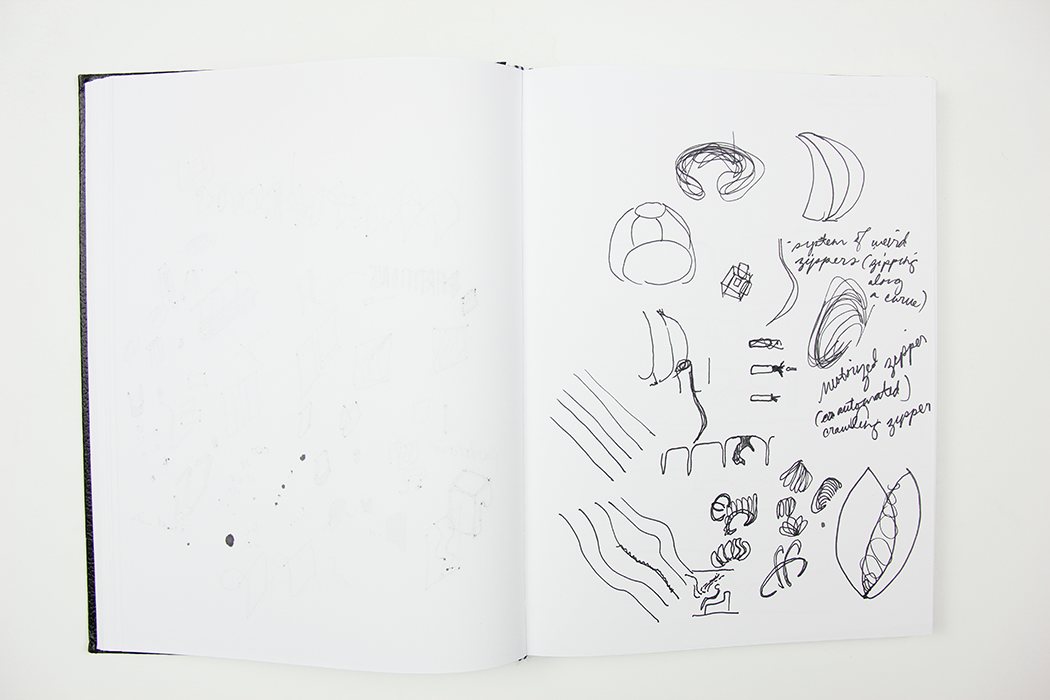 - system of weird
zippers (zipping
along
a curve)
Motorized zipper
(or automated)
crawling zipper